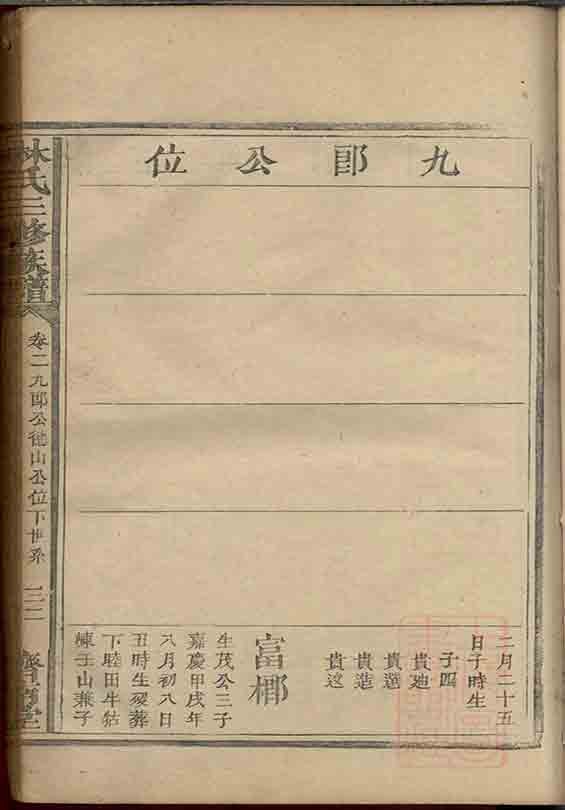 九郎公位
二月二十五
日子時生
子四
貴廸
貴選
貴造
貴达
富梛
生茂公三子
嘉慶甲戌年
八月初八日
丑時生歿葬
下睦田牛牯
棟壬山兼子
林氏三修族譜
卷二九郎公德山公位下世系